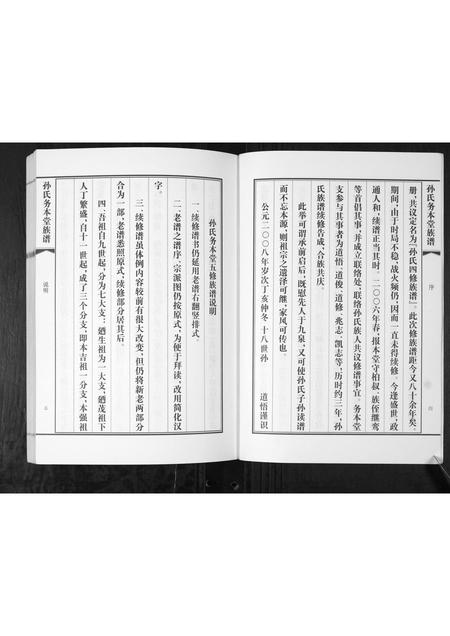 孙氏务本堂族谱
序
四
册，共议定名为「孙氏四修族谱」。此次修族谱距今又八十余年矣。
期间，由于时局不稳，战火频仍，因而一直未得续修。今逢盛世，政
通人和，续谱正当其时。二〇〇六年春，报本堂守柏叔、族侄继鸾
等首倡其事，并成立联络处，联络孙氏族人共议修谱事宜。务本堂
支参与其事者为道悟、道俊、道修、兆志、凯志等，历时约三年，孙
氏族谱续修告成，合族共庆。
此举可谓承前启后，既慰先人于九泉，又可使孙氏子孙读谱
而不忘本源，则祖宗之遗泽可继，家风可传也。
公元二〇〇八年岁次丁亥仲冬 十八世孙 道悟谨识
孙氏务本堂五修族谱说明
一、续修谱书仍延用老谱右翻竖排式。
二、老谱之谱序、宗派图仍按原式，为便于拜读，改用简化汉
字。
三、续修谱虽体例内容较前有很大改变，但仍将新老两部分
合为一部，老谱悉照原式，续修部分居其后。
四、吾祖自九世起，分为七大支；迺生祖为一大支，迺茂祖下
人丁繁盛，自十一世起，成了三个分支，即本吉祖一分支，本强祖
孙氏务本堂族谱
说明
五